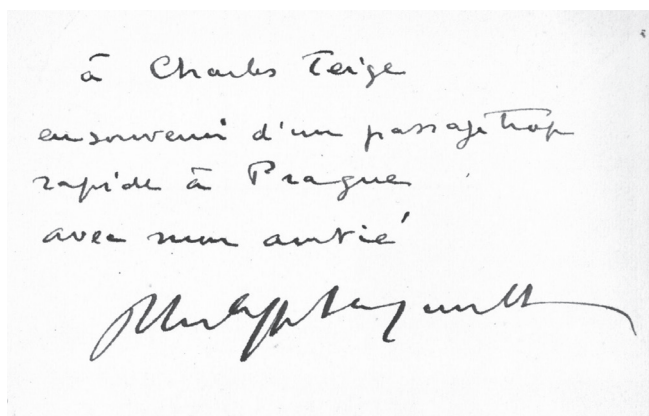 à Charles Teige
en souvenir d'un passage trop
rapide à Prague
avec mon amitié
Philippe Soupault